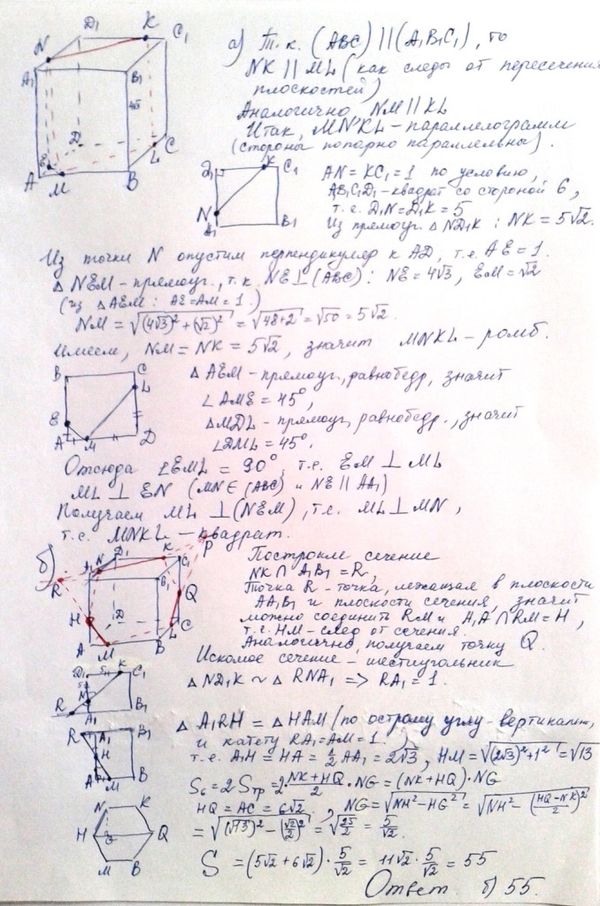 а) Т.к. (ABC) || (A₁B₁C₁), то
NK || ML (как следы от пересечения
плоскостей)
Аналогично NM || KL
Итак, MNKL – параллелограмм
(стороны попарно параллельны).
N D₁ K C₁
A₁ B₁
4√3
E D L C
A M B
D₁ K C₁
N
A₁ B₁
AN = KC₁ = 1 по условию,
A₁B₁C₁D₁ – квадрат со стороной 6,
т.е. D₁N = D₁K = 5
Из прямоуг. △ ND₁K : NK = 5√2.
Из точки N опустим перпендикуляр к AD, т.е. AE = 1.
△ NEM – прямоуг., т.к. NE ⊥ (ABC) : NE = 4√3, EM = √2
(из △ AEM : AE = AM = 1.)
NM = √((4√3)² + (√2)²) = √(48+2) = √50 = 5√2.
Имеем, NM = NK = 5√2, значит MNKL – ромб.
B C
L
E
A M D
△ AEM – прямоуг, равнобедр, значит
∠AME = 45°,
△ MDL – прямоуг, равнобедр., значит
∠DML = 45°.
Отсюда ∠EML = 90°, т.е. EM ⊥ ML
ML ⊥ EN (MN ∈ (ABC) и NE || AA₁)
Получаем ML ⊥ (NEM), т.е. ML ⊥ MN,
т.е. MNKL – квадрат.
б)
D₁ K C₁ P
R A₁ N B₁
H D Q
A M B L C
Построим сечение
NK ∩ A₁B₁ = R,
Точка R – точка, лежащая в плоскости
AA₁B₁ и плоскости сечения, значит
можно соединить RM и A₁A ∩ RM = H,
т.е. HM – след от сечения.
Аналогично, получаем точку Q.
Искомое сечение – шестиугольник
△ ND₁K ~ △ RNA₁ => RA₁ = 1.
D₁ 5 K C₁
N
R A₁ B₁
R A₁ B₁
H
A M B
△ A₁RH = △ HAM (по острому углу – вертикальн,
и катету RA₁ = AM = 1.
т.е. A₁H = HA = ½ AA₁ = 2√3, HM = √((2√3)² + 1²) = √13
S₆ = 2·Sтр = 2·(NK+HQ)/2 · NG = (NK + HQ)·NG
HQ = AC = 6√2, NG = √(NH² – HG²) = √(NH² – ((HQ–NK)/2)²
= √((√13)² – (√2/2)²) = √(25/2) = 5/√2.
N K
H G Q
M B
S = (5√2 + 6√2) · 5/√2 = 11√2 · 5/√2 = 55
Ответ. б) 55.